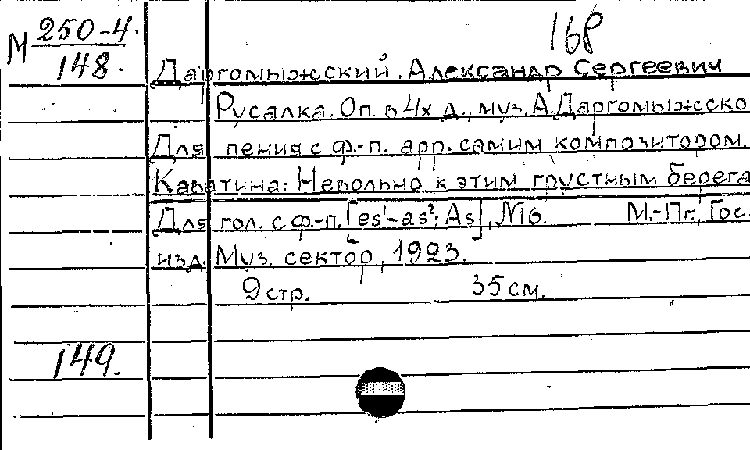 М 250-4
148.
168
Даргомыжский, Александр Сергеевич
Русалка. Оп. в 4х д., муз. А. Даргомыжско
Для пения с ф.-п. арр. самим композитором.
Каватина: Невольно к этим грустным берега
Для гол. с ф-п. [es¹-as²; As], №16. М.-Пг., Гос.
изд. Муз. сектор, 1923.
9 стр. 35 см.
149.